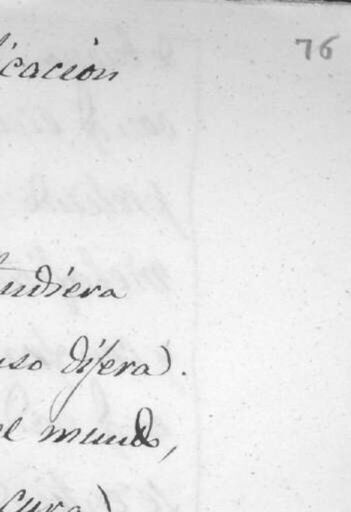 76
icacion
udiera
uso difera).
el mundo,
cura)